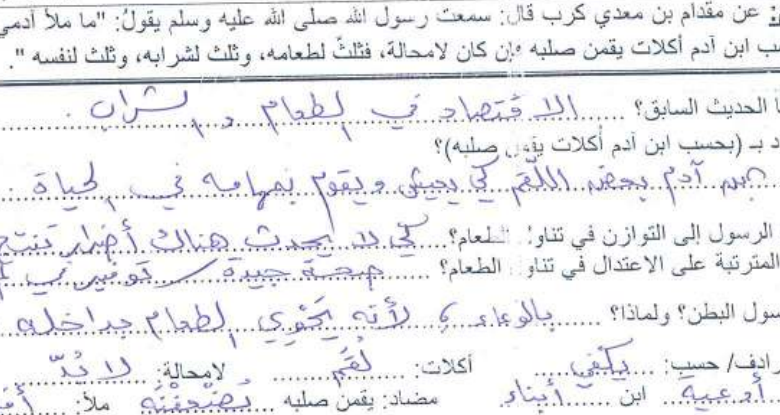 عن مقدام بن معدي كرب قال: سمعت رسول الله صلى الله عليه وسلم يقول: "ما ملأ آدمي
ب ابن آدم أكلات يقمن صلبه فإن كان لامحالة، فثلثٌ لطعامه، وثلث لشرابه، وثلث لنفسه".
الحديث السابق؟ ...... الاقتصاد في الطعام و الشراب ......
د بـ (بحسب ابن آدم أكلات يقمن صلبه)؟
آدم بعض اللقم كي يعيش ويقوم بمهامه في الحياة
الرسول إلى التوازن في تناول الطعام؟ .... كي لا يحدث هناك أضرار تنتج
المترتبة على الاعتدال في تناول الطعام؟ ...... صحة جيدة / توفير في
سول البطن؟ ولماذا؟ ...... بالوعاء ، لأنه يحتوي الطعام بداخله
ادف/ حسب: ..يكفي.. أكلات: ..لُقَم.. لامحالة: لا بُدّ
أوعية ابن .....أبناء. مضاد: يقمن صلبه ... ملأ: